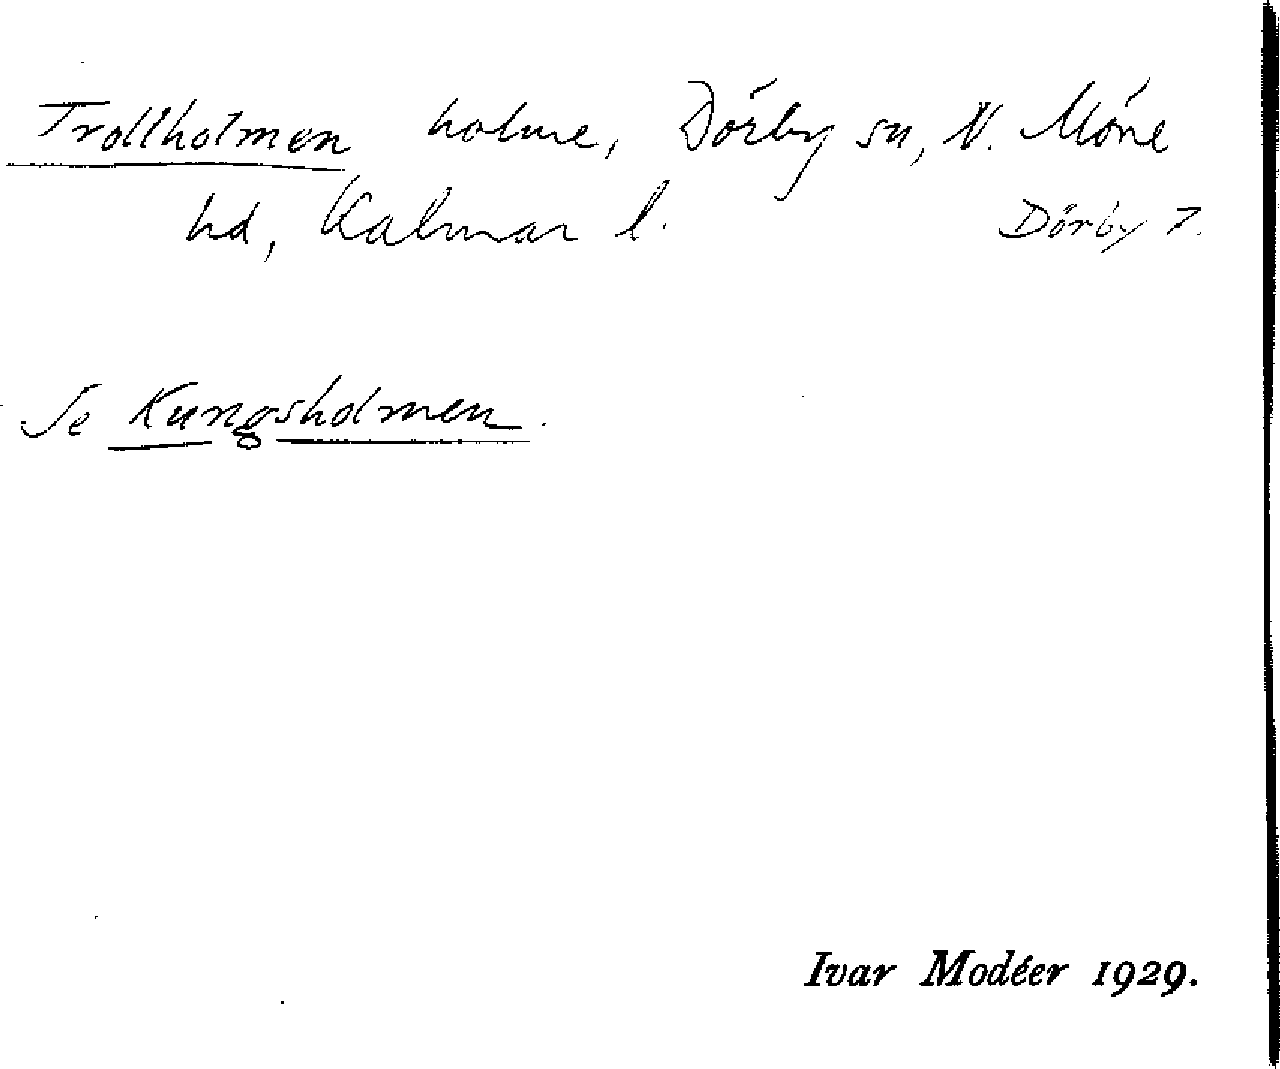 Trollholmen holme, Dörby sn, N. Möre
hd, Kalmar l. Dörby 7.
Se Kungsholmen.
Ivar Modéer 1929.